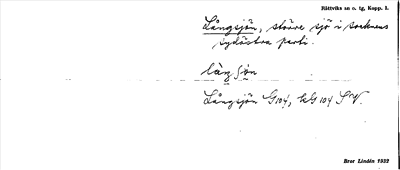 Rättviks sn o. tg, Kopp. l.
Långsjön, större sjö i socknens
sydöstra parti.
làŋʃön
Långsjön G104, hG 104 SV.
Bror Lindén 1932